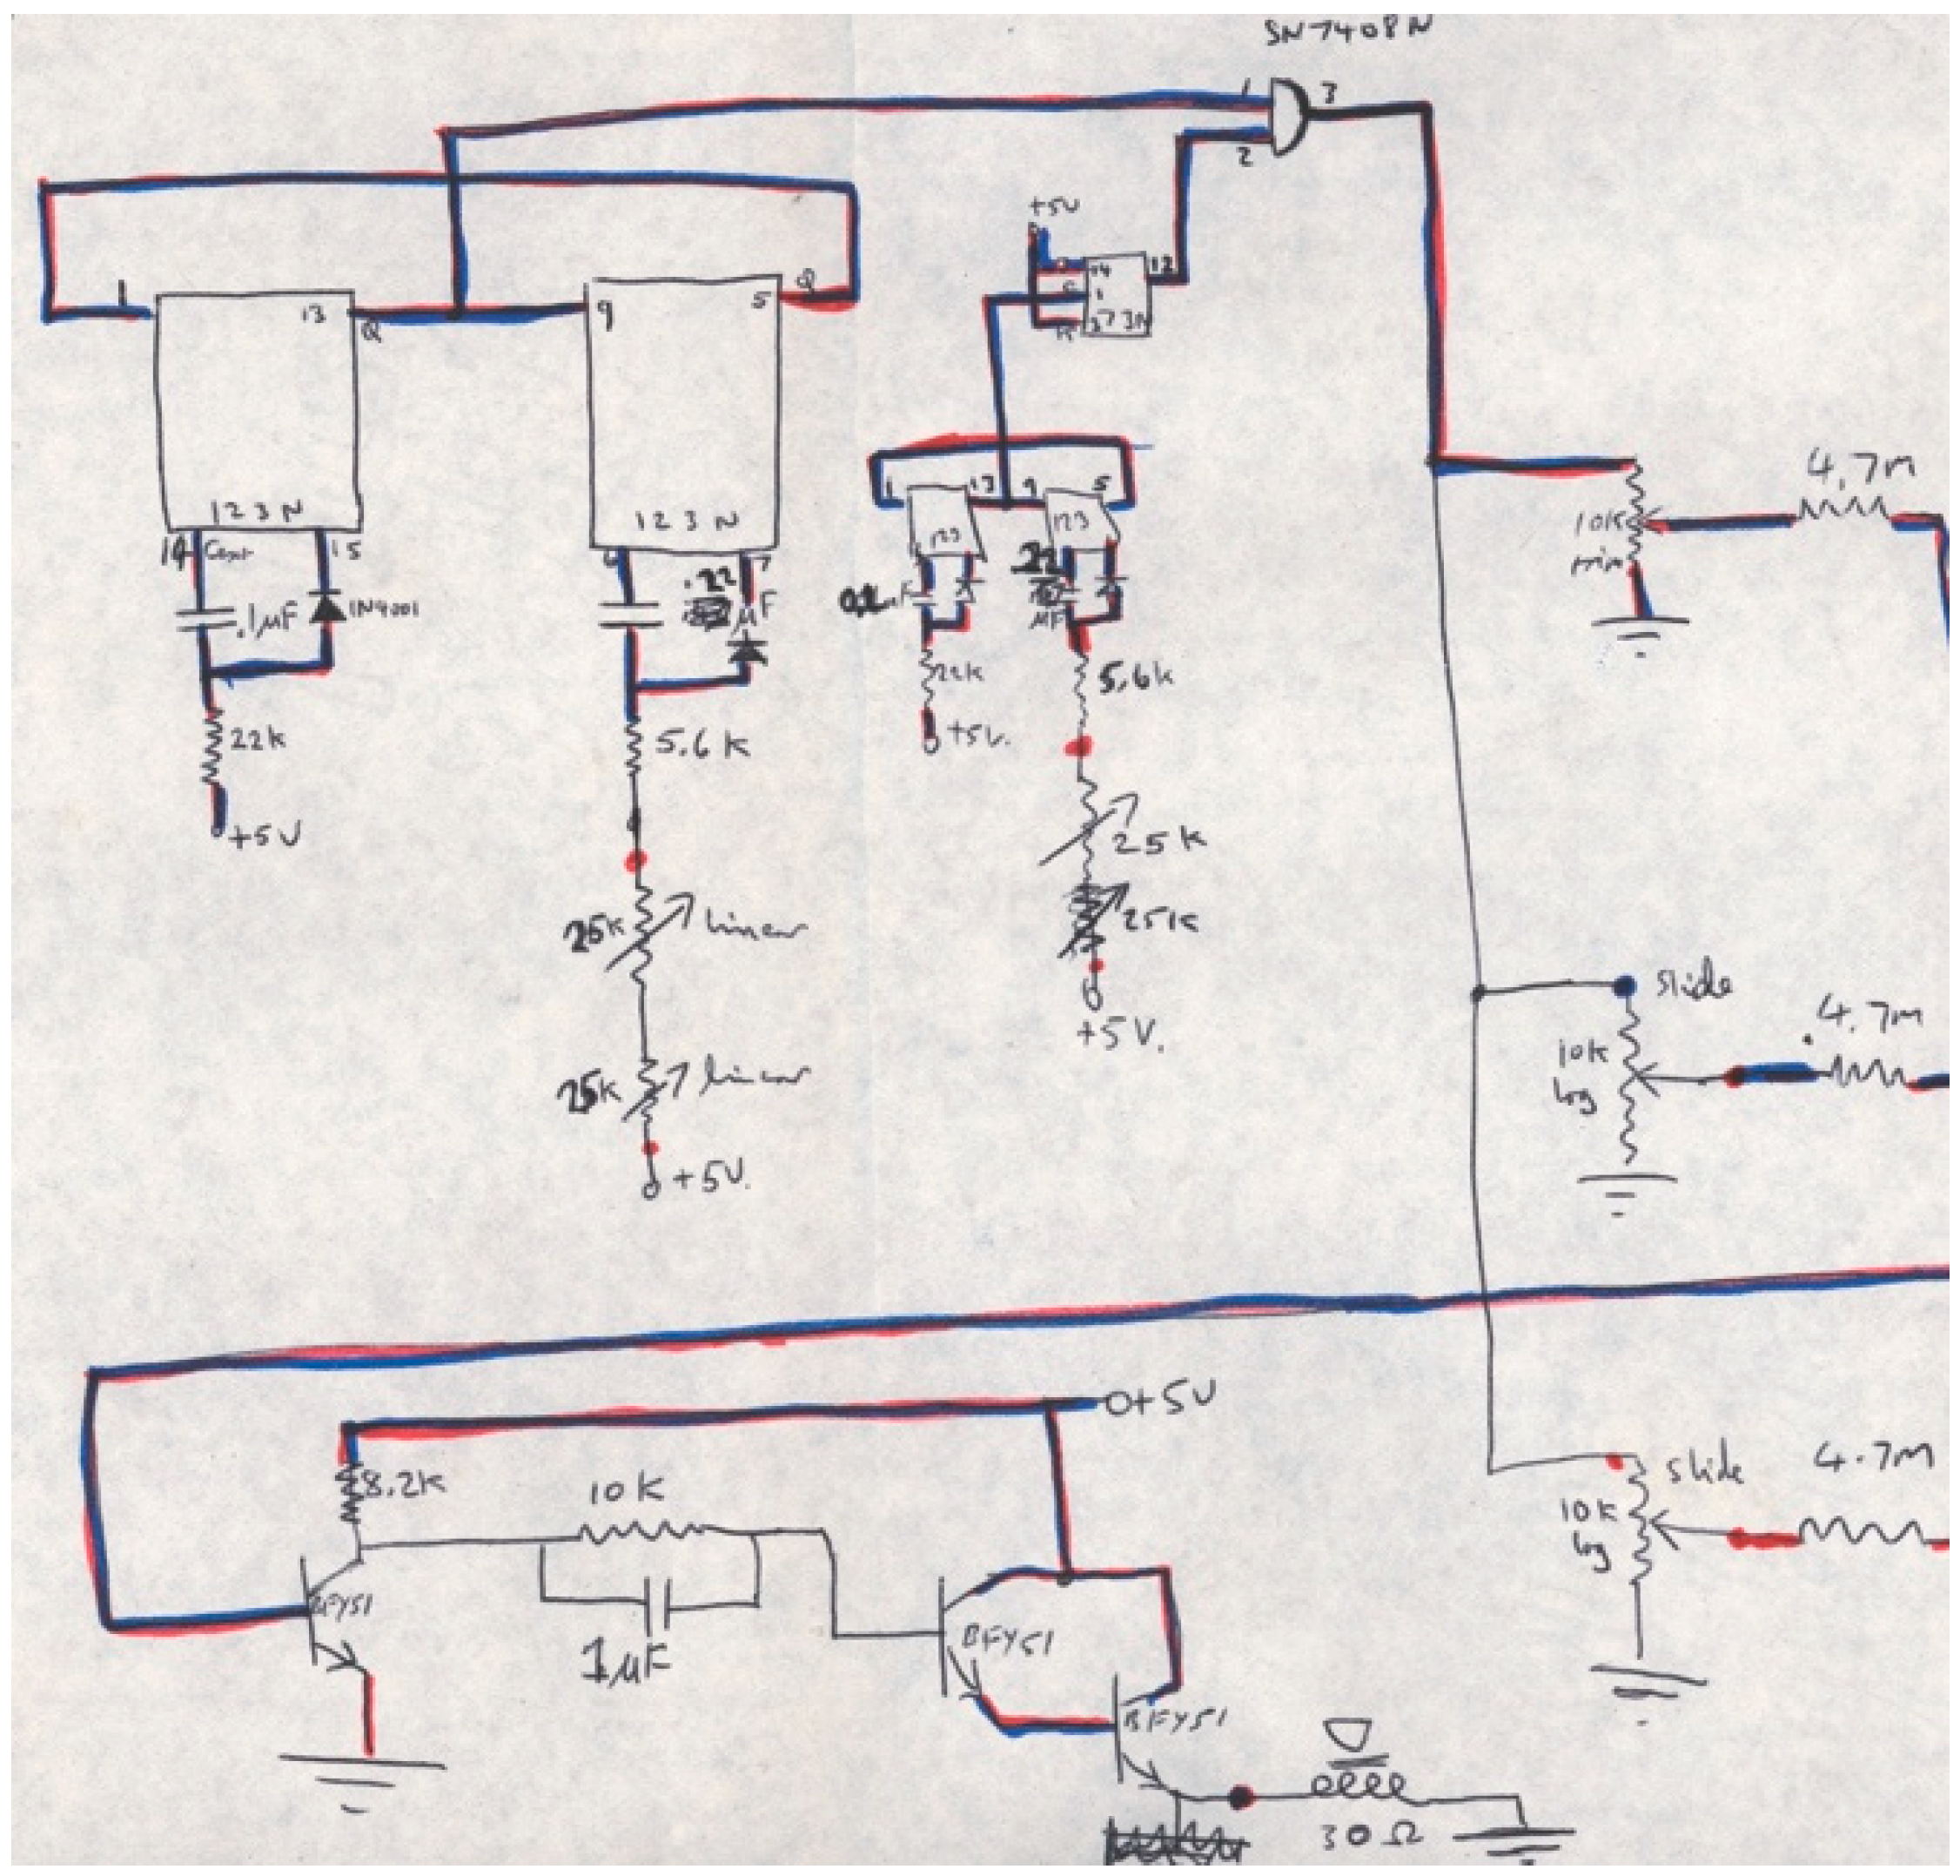 SN7408N
1
3
2
+5V
14
12
1
73N
1
13
Q
9
5
Q
123N
14 Cext
15
.1µF
1N4001
22K
+5V
123N
6
7
.22
µF
5.6K
25K
linear
25K
linear
+5V.
1
13
9
5
123
123
22K
+5V.
.22
µF
5.6K
25K
25K
+5V.
10K
trim
4.7m
slide
10K
log
4.7m
slide
10K
log
4.7m
O+5V
8.2K
10K
1µF
BFY51
BFY51
BFY51
30Ω